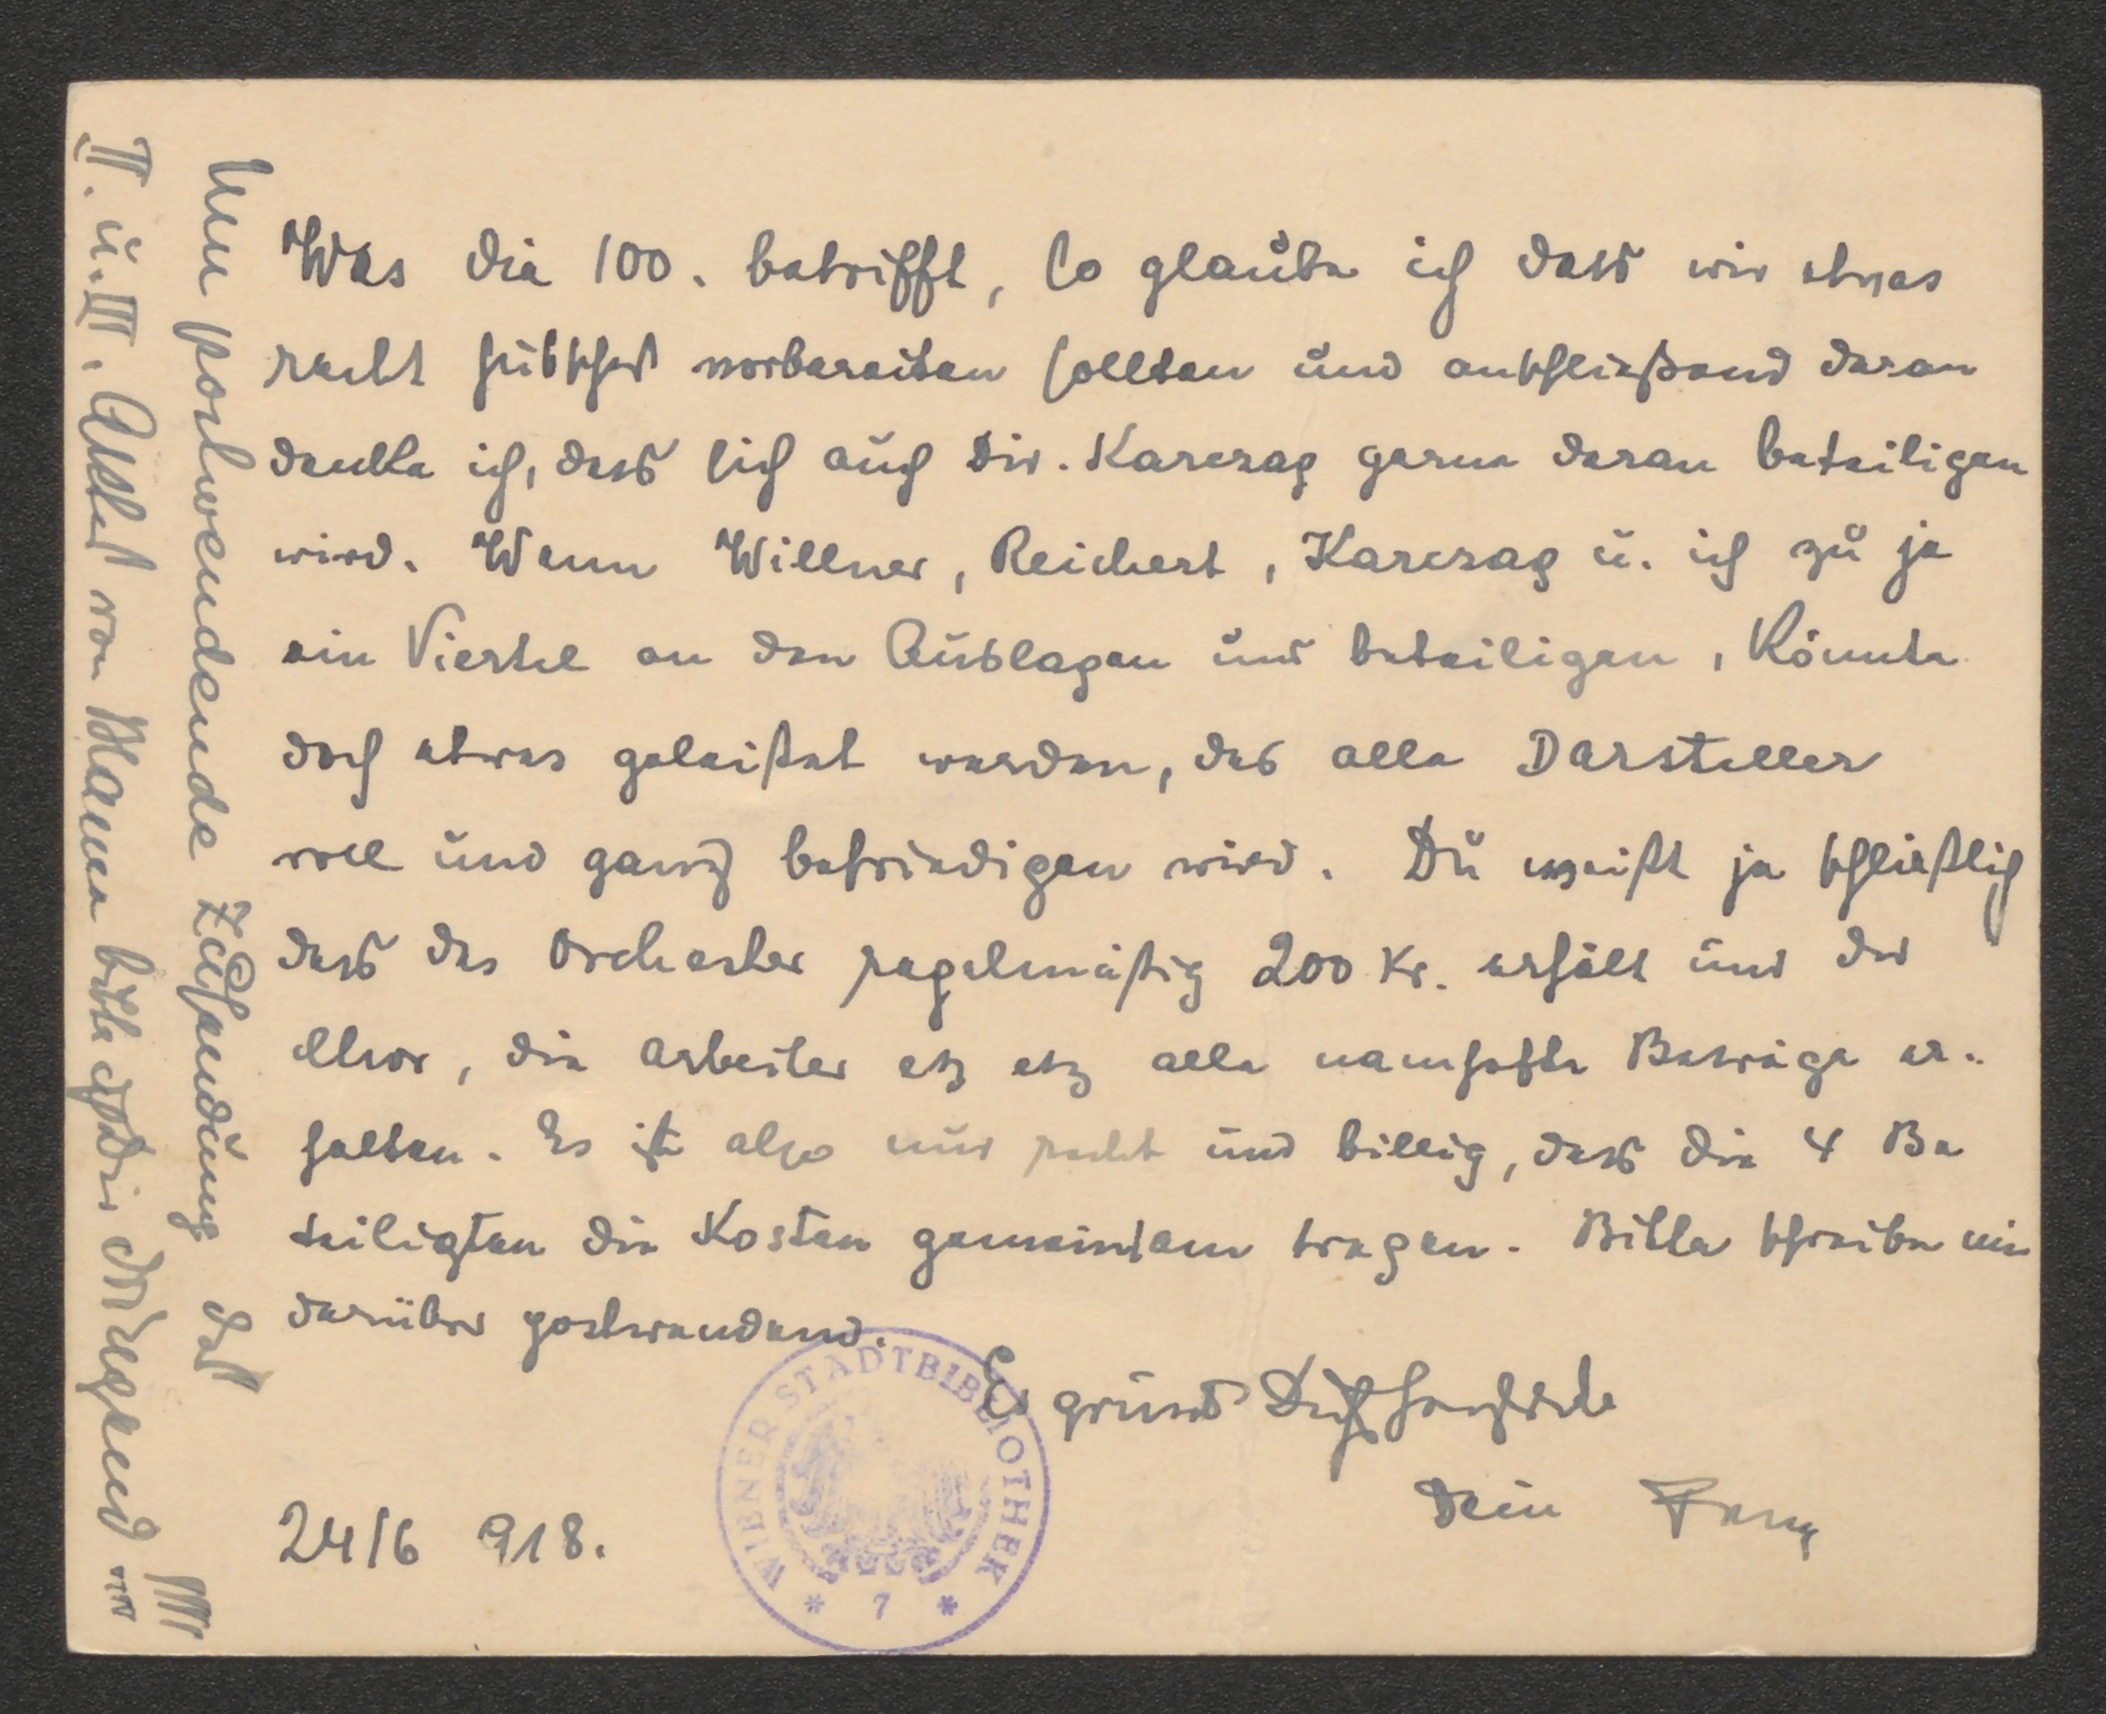 Was die 100. betrifft, so glaube ich dass wir etwas
recht hübsches vorbereiten sollten und anschließend daran
denke ich, dass sich auch Dir. Karczag gerne daran beteiligen
wird. Wenn Willner, Reichert, Karczag u. ich zu je
ein Viertel an den Auslagen uns beteiligen, könnte
doch etwas geleistet werden, das alle Darsteller
voll und ganz befriedigen wird. Du weißt ja schließlich
dass das Orchester regelmäßig 200 Kr. erhält und der
Chor, die Arbeiter etz etz alle namhafte Beträge er-
halten. Es ist also nur recht und billig, dass die 4 Be
teiligten die Kosten gemeinsam tragen. Bitte schreibe mir
darüber postwendend.
Es grüsst Dich herzlichst
Dein Franz
24/6 918.
Um postwendende Zusendung des
II. u. III. Aktes von Hanna bitte ich Dich dringend
WIENER STADTBIBLIOTHEK
* 7 *